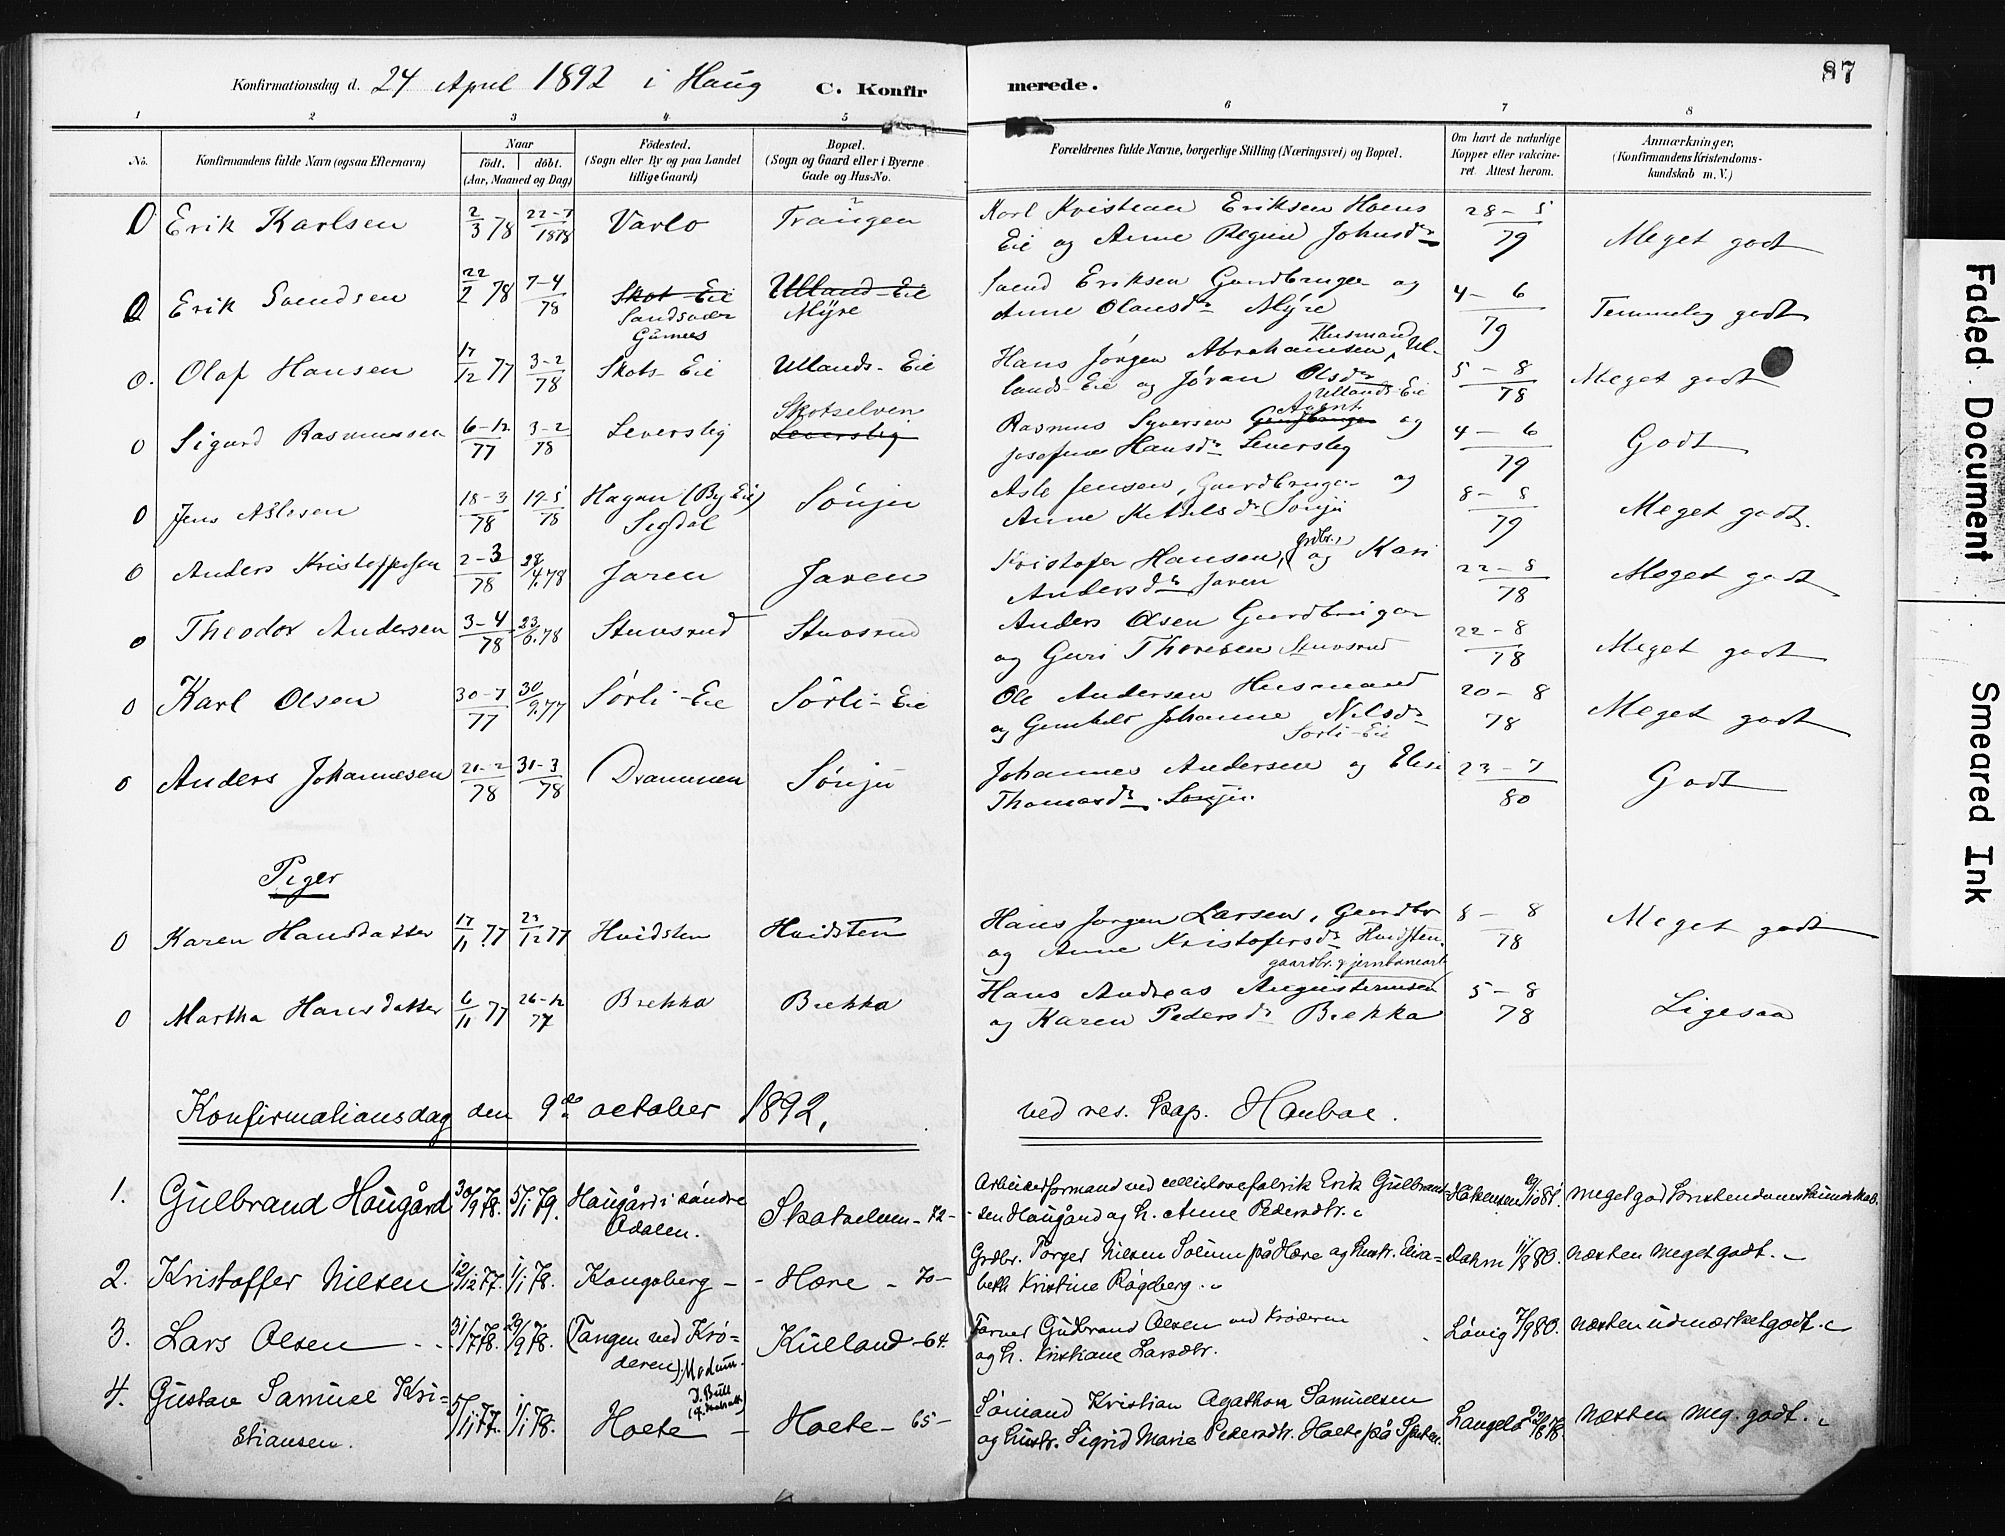 Konfirmationsdag d. 24 April 1892 i Haug C. Konfir merede. 87
1 2 3 4 5 6 7 8
No. Konfirmandens fulde Navn (ogsaa Efternavn) Naar födt. döbt. (Aar, Maaned og Dag) Födested. (Sogn eller By og paa Landet tillige Gaard) Bopæl. (Sogn og Gaard eller i Byerne Gade og Hus-No. Forældrenes fulde Navne, borgerlige Stilling (Næringsvei) og Bopæl. Om havt de naturlige Kopper eller vakcineret Attest herom. Anmærkninger. (Konfirmandens Kristendomskundskab m. V.)
0 Erik Karlsen 2/3 78 22-7 1878 Varlo Karl Kristian Eriksen Hoens 28-5
Eie og Anne Regine Johnsdr 79 Meget godt
0 Erik Svendsen 22/2 78 7-4 78 Skot-Eie Ulland-Eie Svend Eriksen Gaardbruger og 4-6
Sandsvær Myre Anne Olausdr Myre 79 Temmelig godt
0. Olaf Hansen 17/12 77 3-2 78 Skots-Eie Ullands-Eie Hans Jörgen Abrahamsen, Husmand Ul- 5-8
lands-Eie og Jöran Olsdr Ullands-Eie 78 Meget godt
0 Sigurd Rasmussen 6-12 77 3-2 78 Leverslig Skotselven Leverslig Rasmus Syversen Gaardbruger Agent og 4-6
Josefine Hansdr Leverslig 79 Godt
0 Jens Aslesen 18-3 78 19-5 78 Hagan (By Eie) Sönju Asle Jensen, Gaardbruger og 8-8
Sigdal Anne Sönju 79 Meget godt.
0 Anders Kristoffersen 2-3 78 28/4.78 Jaren Jaren Kristofer Hansen, grdbr., og Kari 22-8
Andersdr Jaren 78 Meget godt
0 Theodor Andersen 3-4 78 23/6.78 Stuvsrud Stuvsrud Anders Olsen Gaardbruger 22-8
og Guri Thoresen Stuvsrud 78 Meget godt
0 Karl Olsen 30-7 77 30/9.77 Sörli-Eie Sörli-Eie Ole Andersen Husmand 20-8
og Gunhild Johanne Nilsdr Sorli-Eie 78 Meget godt
0 Anders Johannesen 21-2 78 31-3 78 Drammen Sönju Johannes Andersen og Elise 23-7
Thomasdr. Sonju. 80 Godt
Piger
0 Karen Hansdatter 17/11 77 23/12 77 Hvidsten Hvidsten Hans Jorgen Larsen, Gaardbr 8-8
og Anne Kristofersdr Hvidsten. 78 Meget godt
gaardbr. & jernbanearb
0 Martha Hansdatter 6/11 77 26-12 77 Brekka Brekka Hans Andreas Augustinusen 5-8
og Karen Pedersdr Brekka 78 Ligesaa
Konfirmationsdag den 9de october 1892, ved res. kap. Hanboe.
1. Gulbrand Haugård 30/9 78. 5/1 79. Haugård i söndre Ådalen. Skotselven - 72 - Arbeidsformand ved cellulosefabrik Erik Gulbrand-
sen Haugård og h. Anne Pedersdtr. Håkensen meget god kristendomskundskab.
2. Kristoffer Nilsen 12/12 77. 1/1 78. Kongsberg - Hære - 70 - Grdbr. Torger Nilsen Solum på Hære og hustr. Elisa-
beth Kristine Rögeberg. Dahm 11/8 80. Næsten meget godt.
3. Lars Olsen 31/7 78. 29/9 78. (Tangen ved Krö-
deren) Modum. Kulland - 64. Tarver Gudbrand Olsen ved Kröderen
og h. Kristiane Larsdtr. Lövig 7/9 80. Næsten udmærket godt.
4. Gustav Samuel Kri-
stiansen. 5/11 77. 1/1 78. Hoete - Hoete - 65 - Sömand Kristian Agathon Samuelsen
og hustr. Sigrid Marie Pedersdtr. Hoete på Langelö 22/8 78. Næsten meg. godt.
Faded Document
Smeared Ink